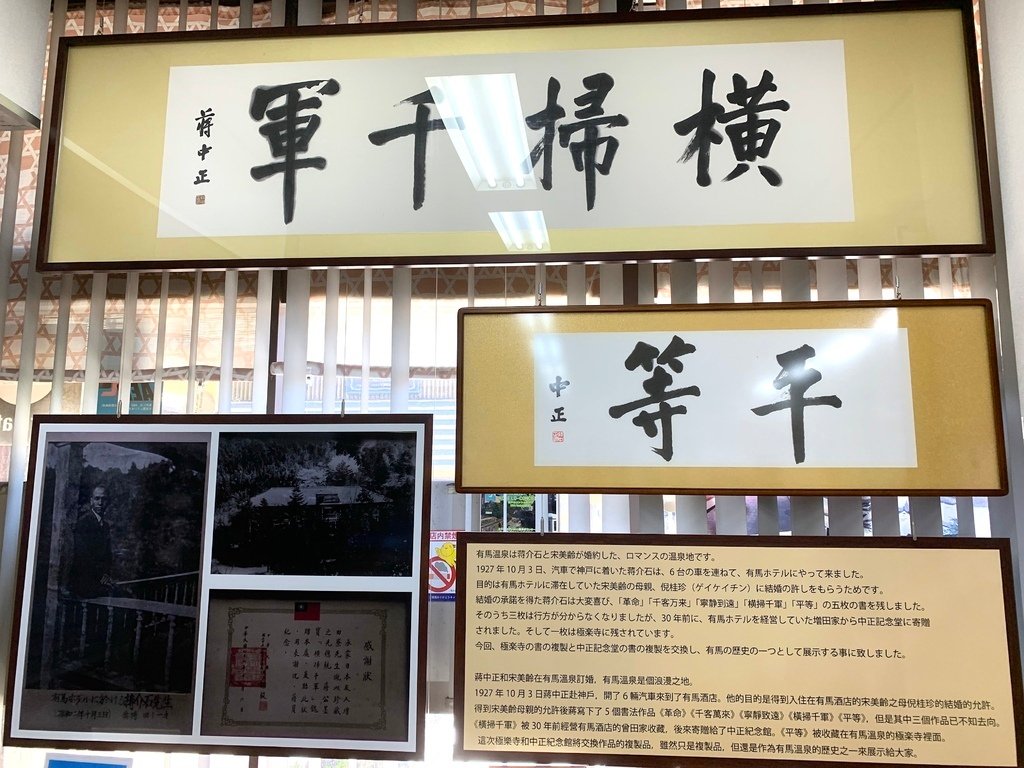 橫掃千軍
蔣中正
平等
中正
有馬温泉は蒋介石と宋美齢が婚約した、ロマンスの温泉地です。
1927 年 10 月 3 日、汽車で神戸に着いた蒋介石は、6 台の車を連ねて、有馬ホテルにやって来ました。
目的は有馬ホテルに滞在していた宋美齢の母親、倪桂珍（ゲイケイチン）に結婚の許しをもらうためです。
結婚の承諾を得た蒋介石は大変喜び、「革命」「千客万来」「寧静到遠」「横掃千軍」「平等」の五枚の書を残しました。
そのうち三枚は行方が分からなくなりましたが、30 年前に、有馬ホテルを経営していた増田家から中正記念堂に寄贈
されました。そして一枚は極楽寺に残されています。
今回、極楽寺の書の複製と中正記念堂の書の複製を交換し、有馬の歴史の一つとして展示する事に致しました。
蔣中正和宋美齡在有馬溫泉訂婚，有馬溫泉是個浪漫之地。
1927 年 10 月 3 日蔣中正赴神戶，開了 6 輛汽車來到了有馬酒店。他的目的是得到入住在有馬酒店的宋美齡之母倪桂珍的結婚的允許。
得到宋美齡母親的允許後蔣寫下了 5 個書法作品《革命》《千客萬來》《寧靜致遠》《橫掃千軍》《平等》，但是其中三個作品已不知去向。
《橫掃千軍》被 30 年前經營有馬酒店的曾田家收藏，後來寄贈給了中正紀念館。《平等》被收藏在有馬溫泉的極樂寺裡面。
這次極樂寺和中正紀念館將交換作品的複製品，雖然只是複製品，但還是作為有馬溫泉的歷史之一來展示給大家。
感謝狀
店内禁煙